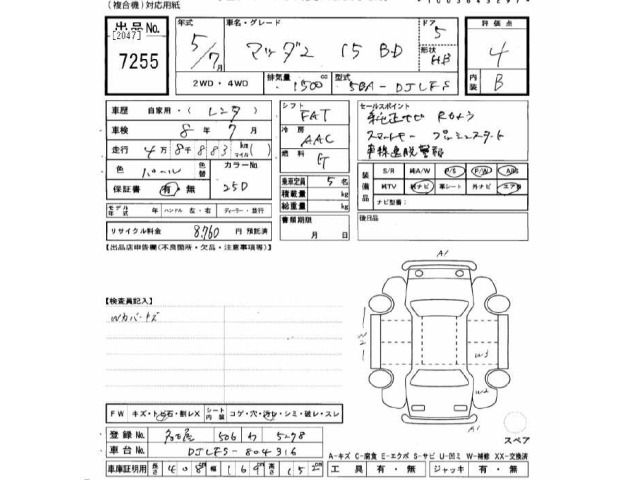 (複合機)対応用紙
出品No. [2047] 7255
年式 5/7月
車名・グレード マツダ2 15 BD
ドア 5
形状 HB
評価点 4
内装 B
2WD・4WD
排気量 1500
型式 5BA-DJLFS
車歴 自家用・(レンタ)
車検 8年7月
走行 4万8千883 km(マイル)
色 パール 色替 カラーNo. 25D
保証書 有・無
モデル年式 年 ハンドル 左・右 ディーラー・並行
リサイクル料金 8,760 円 預託済
シフト FAT
冷房 AAC
燃料 G
乗車定員 5名
積載量 kg
総重量 kg
書類期限 月 日
セールスポイント
純正ナビ Rカメラ
スマートキー プッシュスタート
車線逸脱警報
装備品 S/R 純A/W P/S P/W ABS
MTV 純ナビ 革シート 外ナビ エアB
ナビ型番:
後日品
【出品店申告欄(不良箇所・欠品・注意事項等)】
A1
【検査員記入】
Wカバーキズ
W2
W3
W2
A1
FW キズ・トビ石・割レX シート内装 コゲ・穴・汚レ・シミ・破レ・スレ
スペア
登録No. 名古屋 506 わ 5278
車台No. DJLFS-804316
A-キズ C-腐食 E-エクボ S-サビ U-凹ミ W-補修 XX-交換済
車庫証明用 長さ 408 幅 169 高さ 152
工具 有・無 ジャッキ 有・無